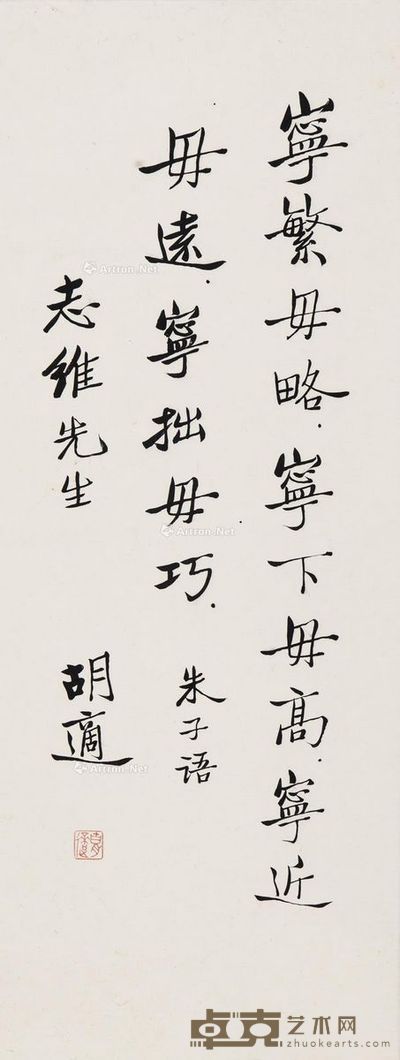 寧繁毋略.寧下毋高.寧近
毋遠.寧拙毋巧.
朱子语
志維先生
胡適
Artron.Net
Artron.Net
Artron.Net
Artron.Net
卓克艺术网
zhuokearts.com